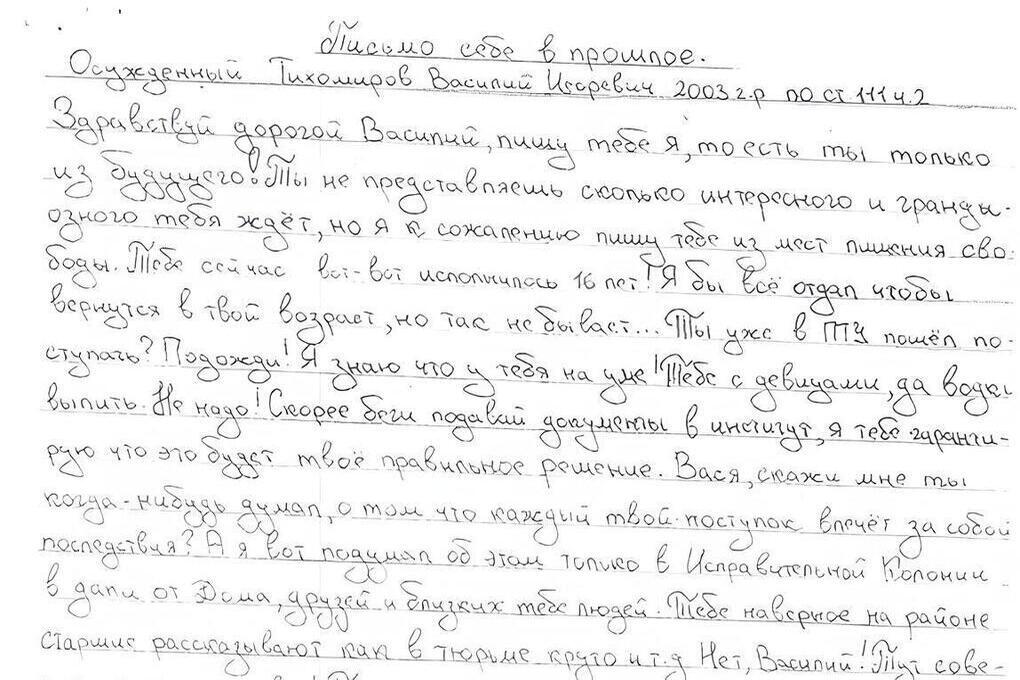 Письмо себе в прошлое.
Осужденный Тихомиров Василий Игоревич 2003 г.р по ст 111 ч.2
Здравствуй дорогой Василий, пишу тебе я, то есть ты только
из будущего! Ты не представляешь сколько интересного и гранды-
озного тебя ждёт, но я к сожалению пишу тебе из мест лишения сво-
боды. Тебе сейчас вот-вот исполнилось 16 лет! Я бы всё отдал чтобы
вернутся в твой возраст, но так не бывает... Ты уже в ПТУ пошёл по-
ступать? Подожди! Я знаю что у тебя на уме! Тебе с девицами, да водки
выпить. Не надо! Скорее беги подавай документы в институт, я тебе гаранти-
рую что это будет твоё правильное решение. Вася, скажи мне ты
когда-нибудь думал, о том что каждый твой поступок влечёт за собой
последствия? А я вот подумал об этом только в Исправительной Колонии
в дали от Дома, друзей и близких тебе людей. Тебе наверное на районе
старшие рассказывают как в тюрьме круто и т.д Нет, Василий! Тут сове-